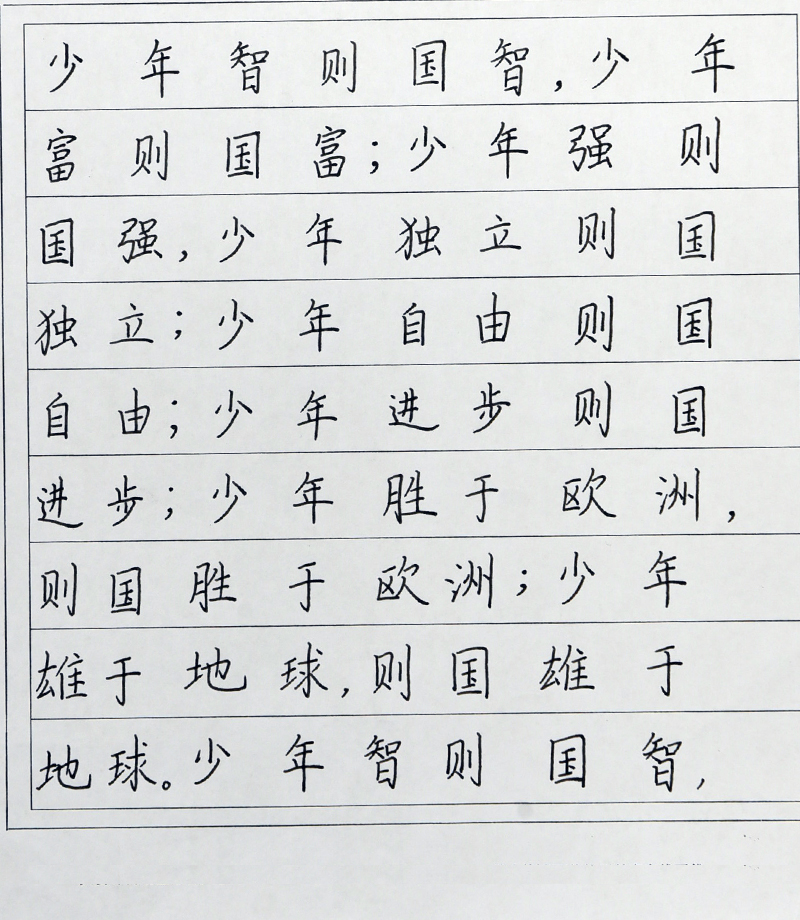 少年智则国智,少年
富则国富;少年强则
国强,少年独立则国
独立;少年自由则国
自由;少年进步则国
进步;少年胜于欧洲,
则国胜于欧洲;少年
雄于地球,则国雄于
地球。少年智则国智,